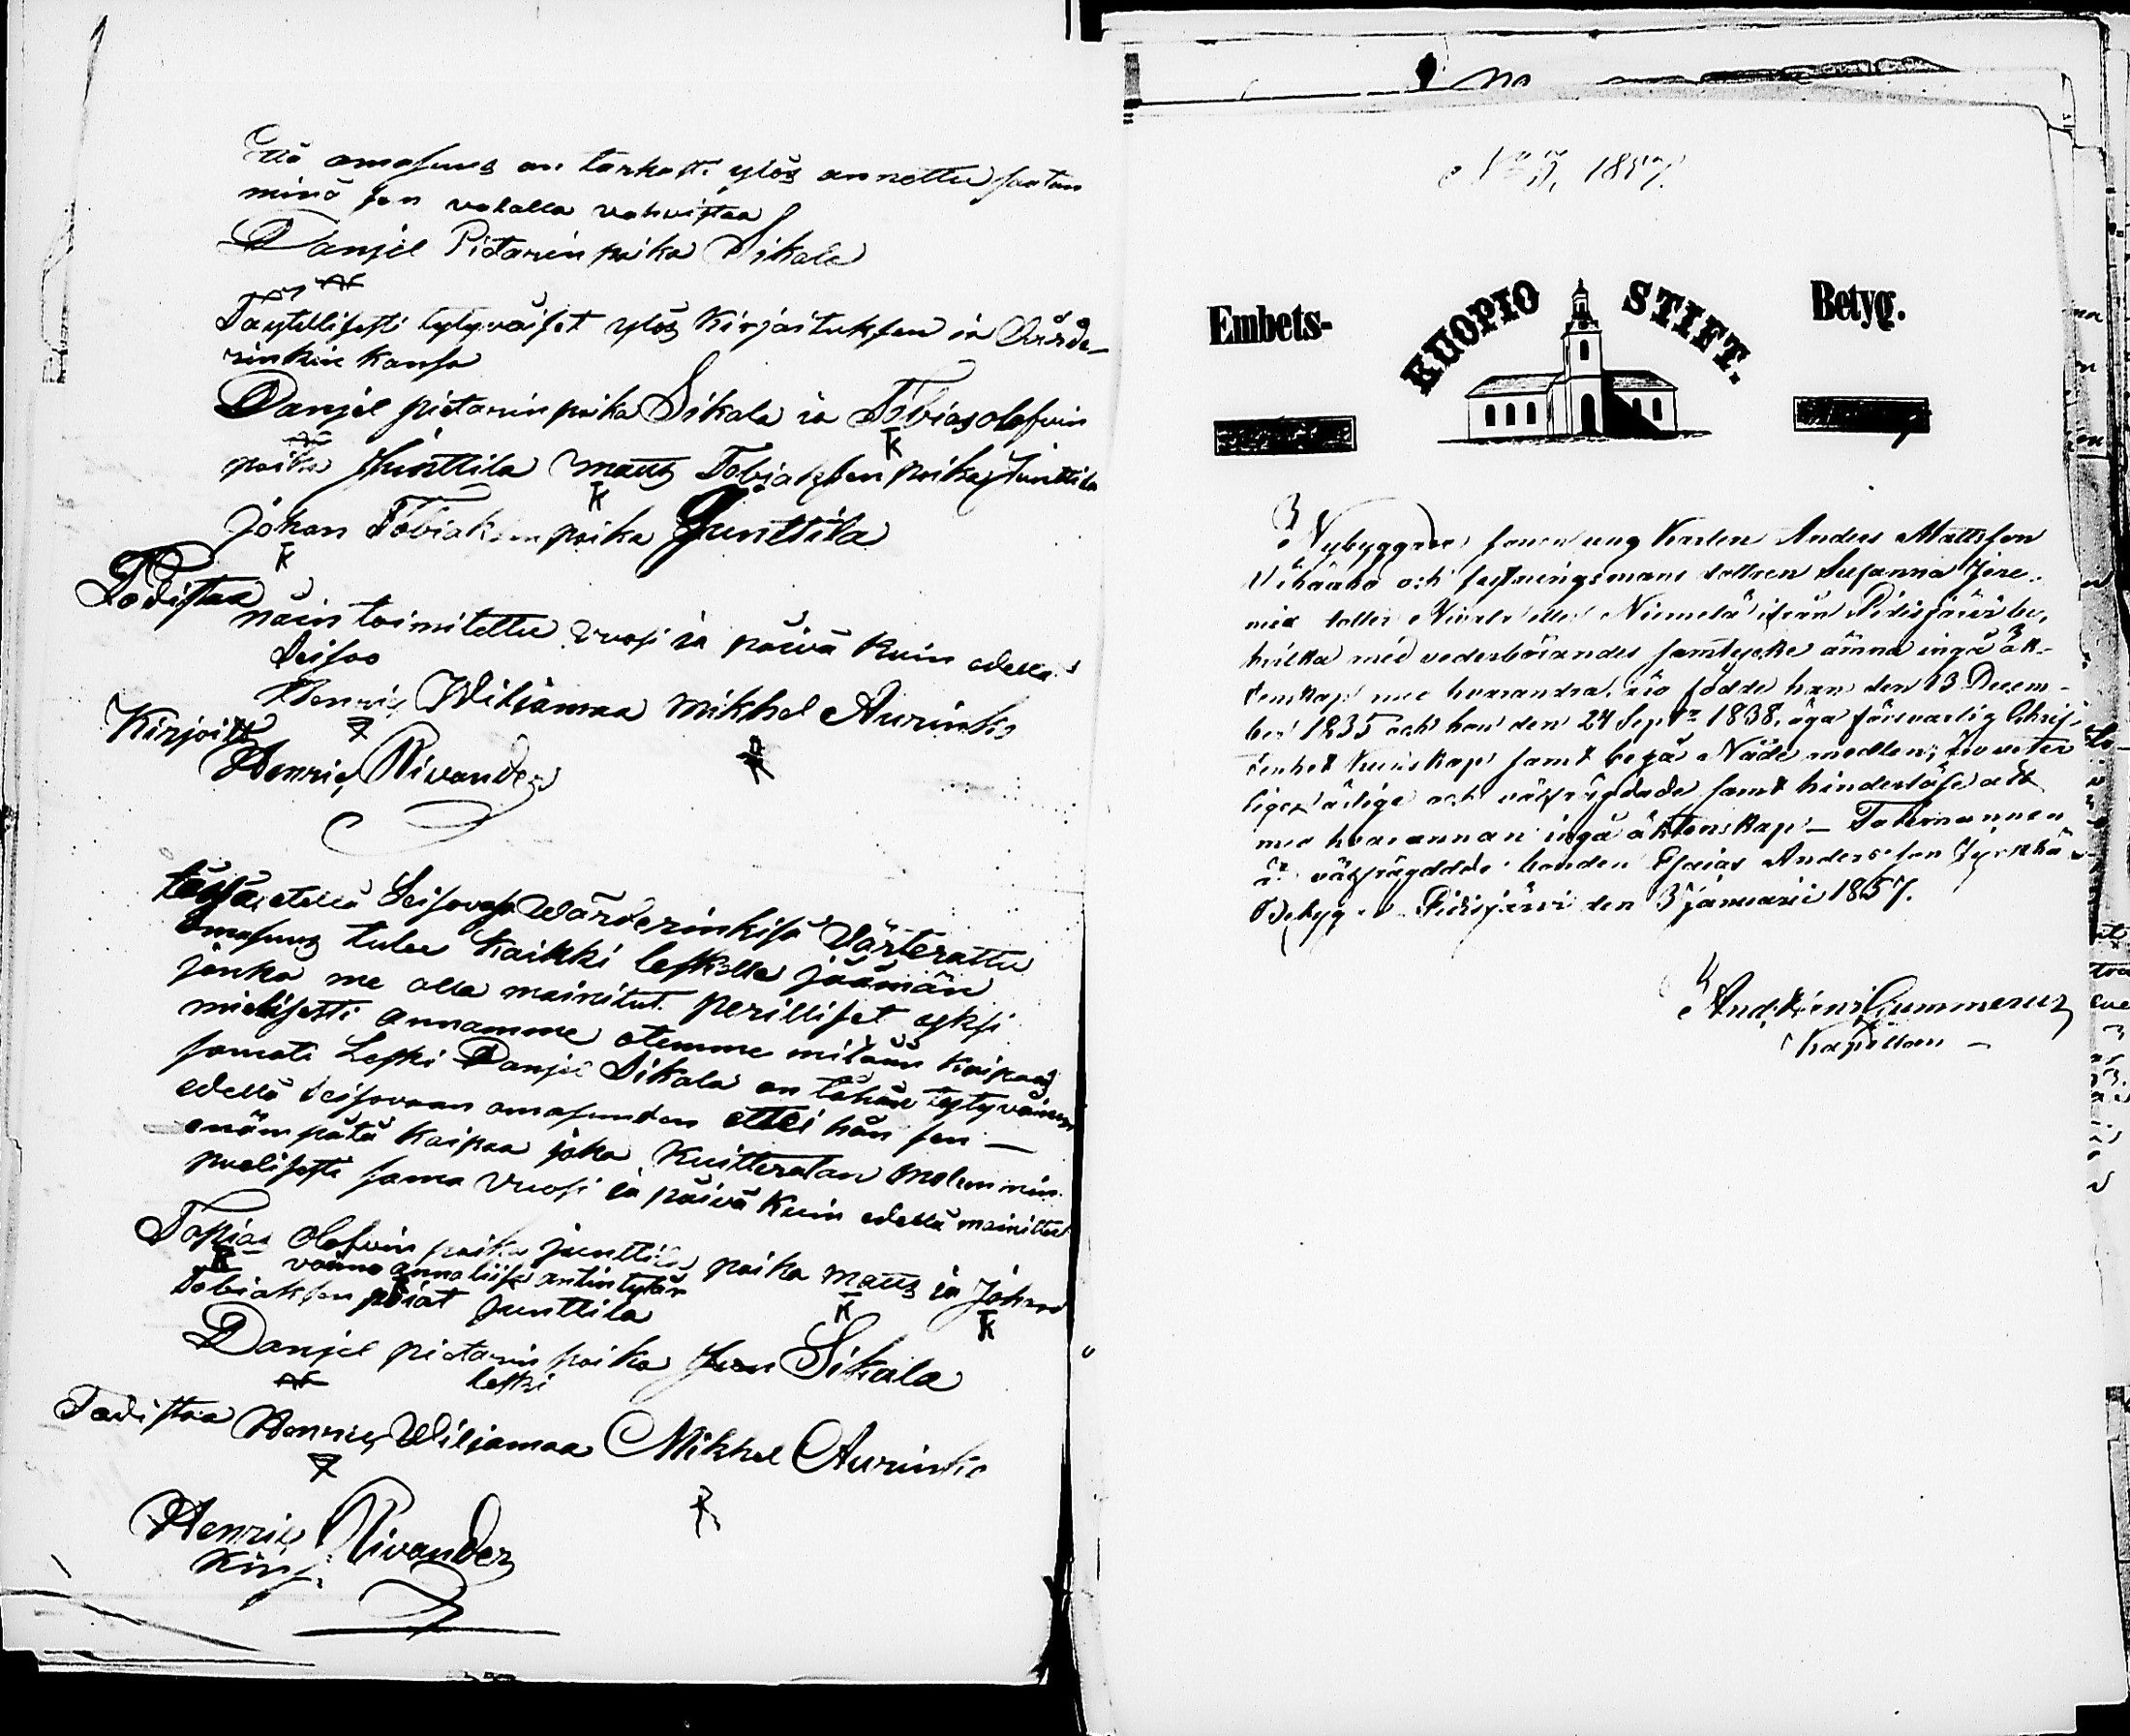 Että omasuus on tarkasti ylös annettu saatan
minä sen valalla vahvistaa
Danjel Pietarin poika Sikala
Täytellisesti tytyväiset ylös Kirjoituksen ja Värde-
rinkin kansa
Danjel pietarin poika Sikala ja Tobias olefvin
poika Junttila Matts Tobiaksen poika Junttila
Johan Tobiaksen poika Junttila
Todistaa
näin toimitettu vuosi ja päivä kuin edellä
seisoo
Henric Wiljamaa Mikhel Aurinko
Kirjoitti
Henric Rivander
tässä etellä seisovasa Wärderinkisä Värterattu
omasuus tulee kaikki leskelle jäämän
jonka me alla mainitut perilliset yksi
mielisesti annamme otemme mitään kaipaa
samati Leski Danjel Sikala on tähän tytyväinen
edellä seisovaan omasuuden ettei hän sen
enämpätä kaipaa joka kuitteratan molemmin
puolisesti sama vuosi ja päivä kuin edellä mainittu
Topias Olefvin poika junttila poika matts ja Johan
K vaimo anna liisa antin tytär
Tobiaksen pojat Junttila
K K
Danjel pietarin poika Sikala
leski
Todistaa Henric Wiljamaa Mikhel Aurinko
Henric Rivander
Kirj:
No 3, 1857.
Embets- KUOPIO STIFT. Betyg.
Nybyggare sonen ung Karlen Anders Mattsson
Vihaaho och festningsmans dottren Susanna Jere-
mix dotter Niemelä ifrån Pidisjärvi by,
hvilka med vederbörandes samtycke ämna ingå äk-
tenskap med hvarandra, äro födde han den 13 Decem-
ber 1835 och hon den 24 Sept. 1838, äga försvarlig Chris-
tenhets kunskap samt begå Nådemedlen; äro veter-
ligen ärlige och välfrägdade samt hinderlöse att
med hvarannan ingå äktenskap. Talemannen
är välfrägdade bonden Esaias Andersson
Betyg. Pidisjärvi den 3 Januarii 1857.
And. Gummerus
Kapellan